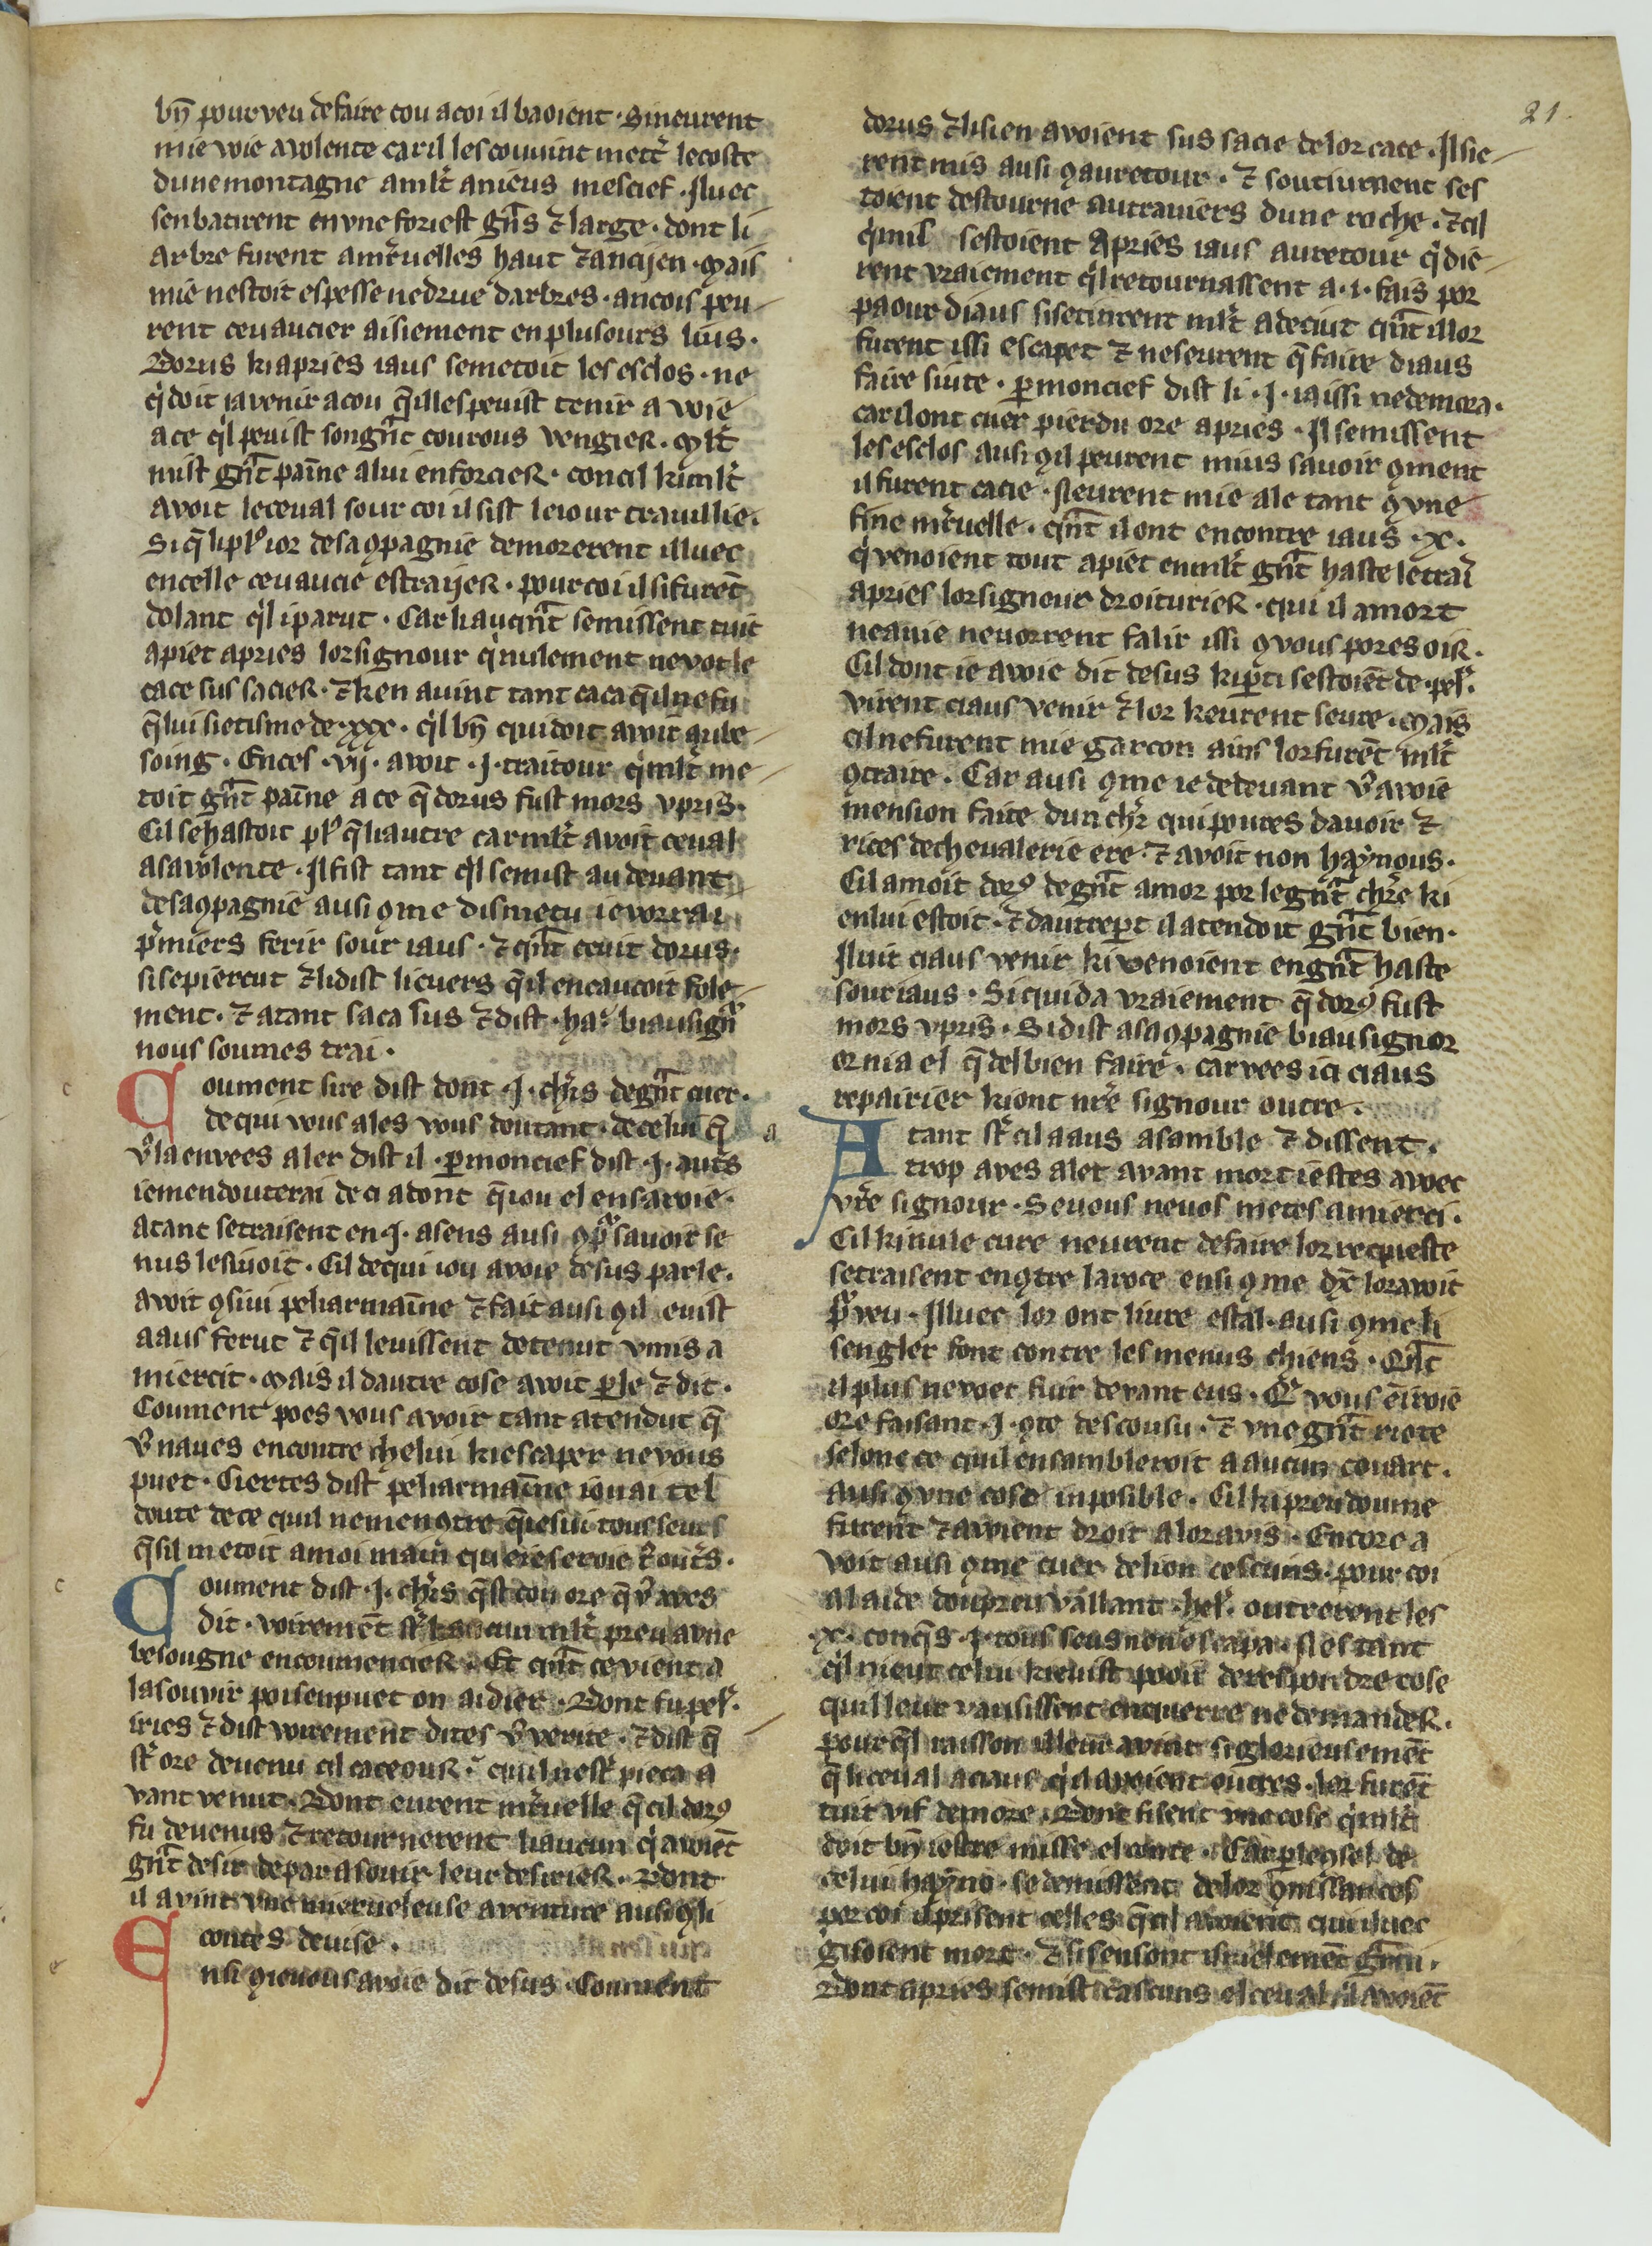 21.
bn̄ pourveu de faire cou a coi il baoient. Si neurent
mie voie a volente car il les couvint metr̄ le coste
dune montagne a ml̄t anieus mescief. Iluec
senbatirent en vne foriest gn̄s ⁊ large. dont li
arbre furent a mr̄uelles haut ⁊ ancijen. Mais
mie nestoit espesse ne drue darbres. ancois peu-
rent ceuaucier aisiement en plusours lius.
Dorus ki apries iaus se metoit les esclos. ne
q̇doit ia venir a cou q̄ il les peuist tenir a voie
a ce ql̇ peuist son gn̄t courous vengier. Ml̄t
mist gn̄t paīne a lui enforcier. con cil ki ml̄t
avoit le ceual sour coi il sist le iour trauillie.
Si q̄ li plꝰior de sa ꝯpagnie demorerent illuec
en celle ceuaucie estraijer. pour coi il si furēt
dolant ql̇ i parut. Car li aucun̄t se missent tuit
a piet apries lor signour q̇ nulement ne vot le
cace sus sacier. ⁊ ken auint tant caca q̄ il ne fu
q̄ lui sietisme de .xxx. ql̇ bn̄ cuidoit avoir au be-
soing. En ces .vij. avoit .j. traitour q̇ ml̄t me-
toit gn̄t paīne a ce q̄ dorus fust mors v pris.
Cil se hastoit plꝰ q̄ li autre car ml̄t avoit ceual
a sa volente. Il fist tant ql̇ se mist au deuant
de sa ꝯpagnie ausi ꝯme disme tu ie vorrai
pᵃmiers ferir sour iaus. ⁊ qn̄t ce vit dorus.
si se piercut ⁊ li dist li cuers q̄ il encaucoit fole-
ment. ⁊ atant saca sus ⁊ dist. ha. biau sign̄r
nous soumes trai.
Coument sire dist dont .j. chr̄s de gn̄t cuer.
de qui vous ales vous doutant. de celui q̄
vꝰ la en vees aler dist il. ꝑ mon cief dist .j. autr̄s
ie men douterai de ci adont q̄ iou el en savoie.
atant se traisent en .j. asens ausi ꝯ pᵃ savoir se
nus les siuoit. Cil de qui iou avoie desus parle.
avoit ꝯsiui peliarmaīne ⁊ fait ausi ꝯ il euist
a aus ferut ⁊ q̄ il leuissent detenut v mis a
miercit. Mais il dautre cose avoit ꝑle ⁊ dit.
Coument poes vous avoir tant atendut q̄
vꝰ naues encontre chelui ki escaper ne vous
puet. Ciertes dist peliarmaīne iou ai tel
doute de ce quil ne mencontre q̄ ie sui tous seus
q̄ sil metoit a moi main quereseroie tꝰ outr̄s.
Coument dist .j. chr̄s q̄st cou ore q̄ vꝰ aves
dit. voirement st̄ ml̄t preu a vne
besougne encoumencier. Et qn̄t ce vient a
lasouvir poi sen puet on aidier. Dont fu pel̄.
iries ⁊ dist voirement dites vꝰ verite. ⁊ dist q̄
st̄ ore devenu cil caceour. quil nest̄ pieca a
vant venut. Dont eurent mr̄uelle q̄ cil dorꝰ
fu devenus ⁊ retournerent li aucun q̇ avoiēt
gn̄t desir de par asouir leur desirier. Dont
il avint vne merueleuse aventure ausi ꝯ li
contes devise.
Ensi ꝯ ie vous avoie dit desus. Coument
dorus ⁊ li sien avoient sus sacie de lor cace. Il sie-
rent mis ausi ꝯ au retour. ⁊ soutiument ses
toient destourne au traviers dune roche. ⁊ cil
q̇ mis sestoient apries iaus au retour q̇die-
rent vraiement ql̇ retournassent a .i. fais por
paour diaus si se tinrent ml̄t a deciut qn̄t il lor
furent issi escapet ⁊ ne seurent q̄ faire diaus
faire siute. ꝑ mon cief dist li .j. ia issi ne demora.
car il ont cuer pierdu ore apries. Il se missent
les esclos ausi ꝯ il peurent mius savoir ꝯment
il furent cacie. Neurent mie ale tant ꝯ vne
fine mr̄uelle. qn̄t il ont encontre iaus .x.
q̇ venoient tout a piet en ml̄t gn̄t haste le trai
apries lor signour droiturier. qui il a mort
ne a vie ne vorrent falir issi ꝯ vous pores oir.
Cil dont ie avoie dit desus ki ꝑti sestoiēt de .pel̄.
virent ciaus venir ⁊ lor keurent seure. Mais
cil ne furent mie garcon ains lor furēt ml̄t
ꝯtraire. Car ausi ꝯme ie de devant vꝰ avoie
mension faite dun chr̄ qui poures davoir ⁊
rices de chevalerie ere. ⁊ avoit non haynous.
Cil amoit dorꝰ de gn̄t amor por le gn̄t chr̄e ki
en lui estoit. ⁊ dautre ꝑt il atendoit gn̄t bien.
Il vit ciaus venir ki venoient en gn̄t haste
sour iaus. Si quida vraiement q̄ dorꝰ fust
mors v pris. Si dist a sa ꝯpagnie biau signor
or ni a el q̄ del bien faire. car vees ici ciaus
repairier ki ont nr̄e signour outre.
Atant st̄ cil a aus asamble ⁊ dissent.
trop aves alet avant mort iestes avoec
vr̄e signour. Se vous ne vos metes a mierci.
Cil ki nule cure neurent de faire lor requeste
se traisent en ꝯtre la roce ensi ꝯme dx̄ lor avoit
pᵃveu. Illuec lor ont liure estal. ausi ꝯme li
sengler font contre les menus chiens. Qn̄t
il plus ne voet fuir devant eus. Q̄ vous en iroie
ore faisant .j. ꝯte descousu. ⁊ vne gn̄t riote
selonc ce quil ensambleroit a aucun couart.
ausi ꝯ vne cose inposible. Cil ki preudoume
furent ⁊ avoient droit a lor avis. Encore a
voit ausi ꝯme cuer de lion cescuns. pour coi
a laide dou preu vallant .hel̄. outrerent les
.x. conq̄s .j. tous seus nen escapa. Nes tant
ql̇ nieut celui ki euist pooir de respondre cose
quil leur vausissent enquerre ne demander.
pour q̄l raison il leur avint si glorieusemēt
q̄ li ceval a ciaus q̇l avoient outres. lor furēt
tuit vif demore. Dont fisent vne cose q̇ ml̄t
doit bn̄ iestre misse el conte. Car ꝑ le ꝯsel de
celui hayno. se demissent de lor ꝯnissances
por coi il prisent celles q̄ cil avoient qui iluec
gisoient mort. ⁊ si sen sont isnielement gn̄i.
Dont apries se mist cascuns el ceval q̇l avoiēt